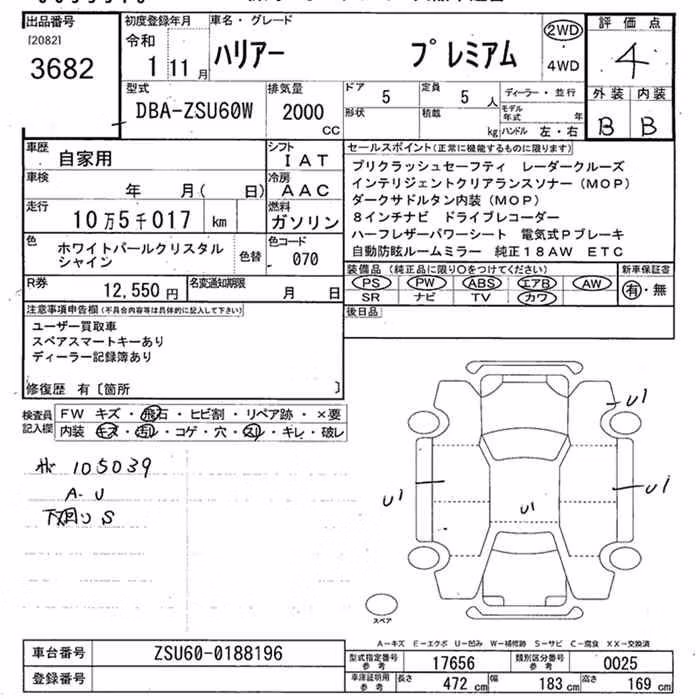 出品番号
[2082]
3682
初度登録年月
令和
1 11月
車名・グレード
ハリアー プレミアム
2WD
4WD
評価点
4
外装 内装
B B
型式
DBA-ZSU60W
排気量
2000
CC
ドア
5
定員
5 人
形状
積載
kg
ディーラー・並行
モデル年式 年
ハンドル 左・右
車歴
自家用
シフト
IAT
車検
年 月( 日)
冷房
AAC
走行
10万5千017 km
燃料
ガソリン
色
ホワイトパールクリスタル
シャイン
色替
色コード
070
R券
12,550 円
名変通知期限
月 日
セールスポイント(正常に機能するものに限ります)
プリクラッシュセーフティ レーダークルーズ
インテリジェントクリアランスソナー(MOP)
ダークサドルタン内装(MOP)
8インチナビ ドライブレコーダー
ハーフレザーパワーシート 電気式Pブレーキ
自動防眩ルームミラー 純正18AW ETC
装備品(純正品に限り○をつけてください)
PS PW ABS エアB AW
SR ナビ TV カワ
新車保証書
有・無
後日品
注意事項申告欄(不具合内容等は具体的に記入して下さい)
ユーザー買取車
スペアスマートキーあり
ディーラー記録簿あり
修復歴 有〔箇所 〕
検査員
記入欄
FW キズ・飛石・ヒビ割・リペア跡・×要
内装 キズ・汚レ・コゲ・穴・スレ・キレ・破レ
105039
A・U
下廻り S
U1
U1
U1
U1
スペア
A-キズ E-エクボ U-凹み W-補修跡 S-サビ C-腐食 XX-交換済
車台番号
ZSU60-0188196
登録番号
型式指定番号
参考
17656
類別区分番号
参考
0025
車庫証明用
参考
長さ 472 cm 幅 183 cm 高さ 169 cm